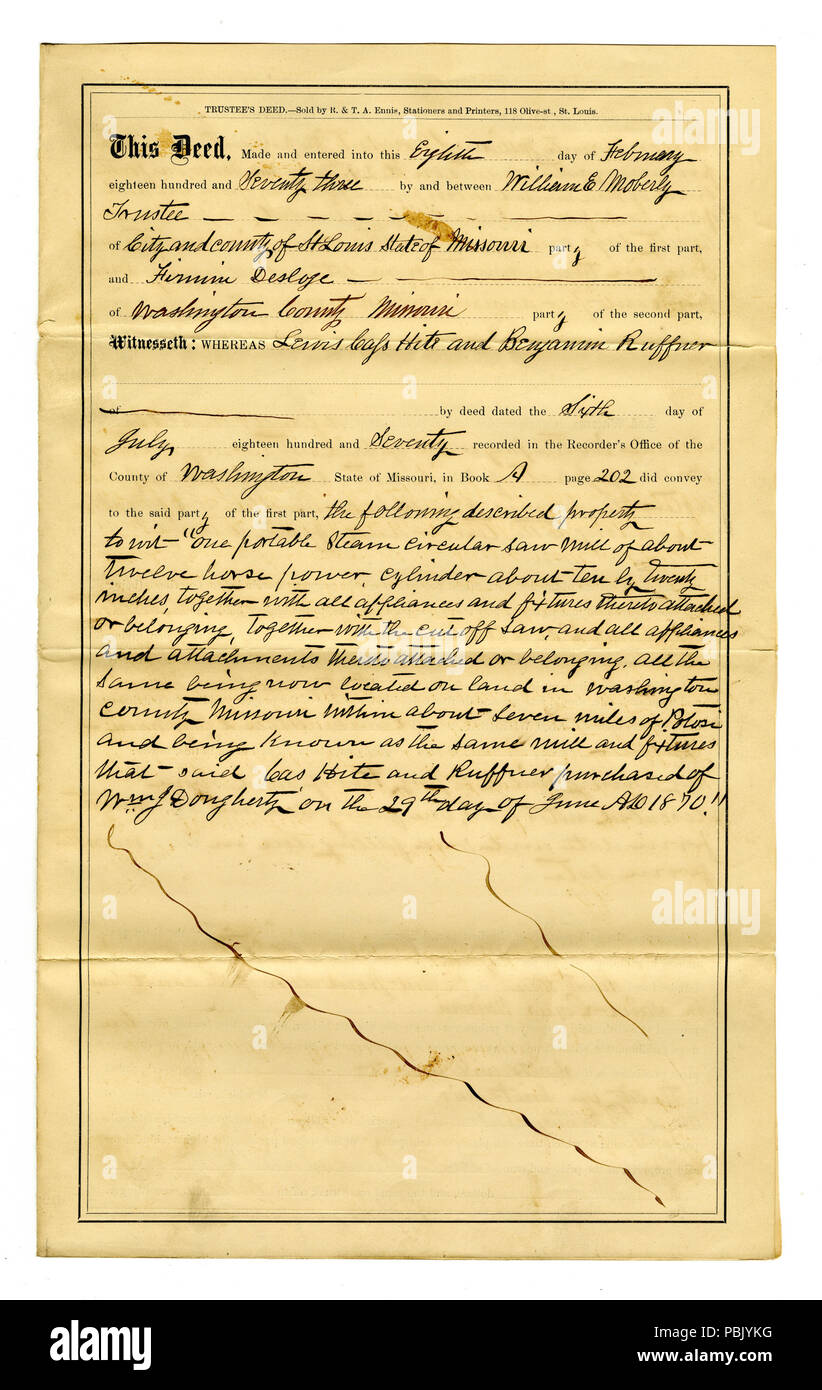 TRUSTEE'S DEED.—Sold by R. & T. A. Ennis, Stationers and Printers, 118 Olive-st, St. Louis.
This Deed, Made and entered into this Eighth day of February
eighteen hundred and Seventy three by and between William E Moberly
Trustee
of City and county of St Louis State of Missouri party of the first part,
and Firmin Desloge
of Washington County Missouri party of the second part,
Witnesseth: WHEREAS Lewis Cass Hite and Benjamin Ruffner
of by deed dated the Sixth day of
July, eighteen hundred and Seventy recorded in the Recorder's Office of the
County of Washington State of Missouri, in Book A page 202 did convey
to the said party of the first part, the following described property
to wit "one portable Steam circular saw mill of about
twelve horse power, cylinder about ten by twenty
inches, together with all appliances and fixtures thereto attached
or belonging, together with the cut off saw, and all appliances
and attachments thereto attached or belonging, all the
same being now located on land in Washington
county Missouri within about seven miles of Potosi
and being known as the same mill and fixtures
that said Cas Hite and Ruffner purchased of
Wm J Dougherty on the 29th day of June AD 1870."
alamy
alamy
alamy
alamy
Image ID: PBJYKG
www.alamy.com